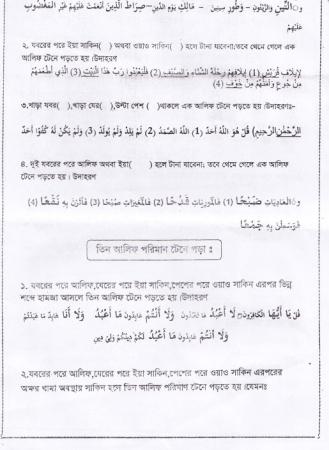 وَالتِّينِ وَالزَّيْتُونِ - وَطُورِ سِينِينَ - مَالِكِ يَوْمِ الدِّينِ - صِرَاطَ الَّذِينَ أَنْعَمْتَ عَلَيْهِمْ غَيْرِ الْمَغْضُوبِ
عَلَيْهِمْ
২. যবরের পরে ইয়া সাকিন( ) অথবা ওয়াও সাকিন( ) হলে টানা যাবেনা;তবে থেমে গেলে এক
আলিফ টেনে পড়তে হয় ।উদাহরণ
لِإِيلَافِ قُرَيْشٍ (1) إِيلَافِهِمْ رِحْلَةَ الشِّتَاءِ وَالصَّيْفِ (2) فَلْيَعْبُدُوا رَبَّ هَذَا الْبَيْتِ (3) الَّذِي أَطْعَمَهُمْ
مِنْ جُوعٍ وَآمَنَهُمْ مِنْ خَوْفٍ (4)
৩.খাড়া যবর( ),খাড়া যের( ),উল্টা পেশ ( )থাকলে এক আলিফ টেনে পড়তে হয় ।উদাহরণঃ-
الرَّحْمٰنِ الرَّحِيْمِ) قُلْ هُوَ اللَّهُ أَحَدٌ (1) اللَّهُ الصَّمَدُ (2) لَمْ يَلِدْ وَلَمْ يُولَدْ (3) وَلَمْ يَكُنْ لَهُ كُفُوًا أَحَدٌ
৪. দুই যবরের পরে আলিফ অথবা ইয়া( ) হলে টানা যাবেনা; তবে থেমে গেলে এক আলিফ
টেনে পড়তে হয় । উদাহরণ
وَالْعَادِيَاتِ ضَبْحًا (1) فَالْمُورِيَاتِ قَدْحًا (2) فَالْمُغِيرَاتِ صُبْحًا (3) فَأَثَرْنَ بِهِ نَقْعًا (4)
فَوَسَطْنَ بِهِ جَمْعًا
তিন আলিফ পরিমান টেনে পড়া ঃ
১. যবরের পরে আলিফ,যেরের পরে ইয়া সাকিন,পেশের পরে ওয়াও সাকিন এরপর ভিন্ন
শব্দে হামজা আসলে তিন আলিফ টেনে পড়তে হয় ।উদাহরণ
قُلْ يَا أَيُّهَا الْكَافِرُونَ لَا أَعْبُدُ مَا تَعْبُدُونَ وَلَا أَنْتُمْ عَابِدُونَ مَا أَعْبُدُ وَلَا أَنَا عَابِدٌ مَا عَبَدْتُمْ
وَلَا أَنْتُمْ عَابِدُونَ مَا أَعْبُدُ لَكُمْ دِينُكُمْ وَلِيَ دِينِ
২.যবরের পরে আলিফ,যেরের পরে ইয়া সাকিন,পেশের পরে ওয়াও সাকিন এরপরের
অক্ষর থামা অবস্থায় সাকিন হলে তিন আলিফ পরিমাণ টেনে পড়তে হয় ।যেমনঃ